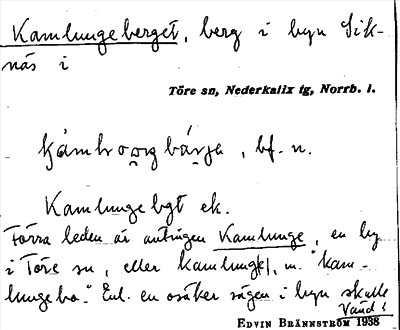 Kamlungeberget, berg i byn Sik-
näs i
Töre sn, Nederkalix tg, Norrb. l.
bf. n.
Kamlunge bgt ek.
Förra leden är antingen Kamlunge, en by
i Töre sn, eller kamlung, m. "kam-
lungebo." Enl. en osäker sägen i byn skulle
Vänd!
EDVIN BRÄNNSTRÖM 1938